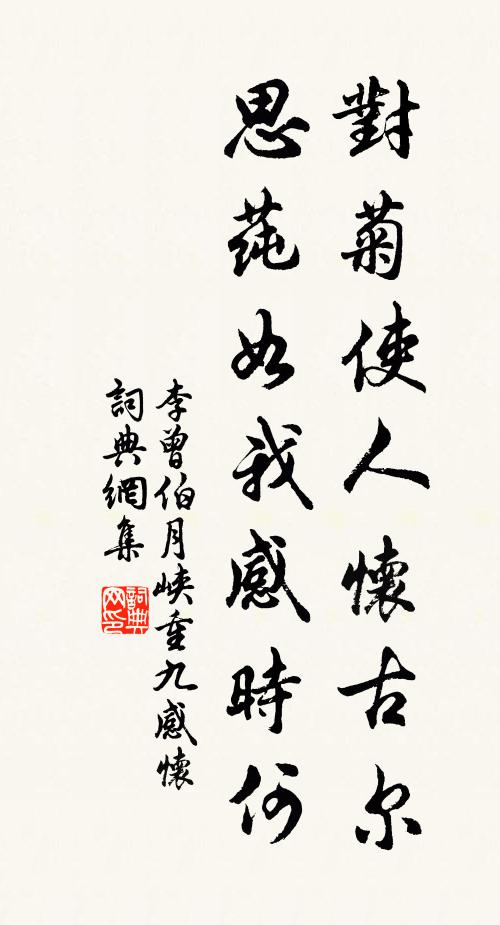 對菊使人懷古尔
思莼如我感時何
李曾伯月峽重九感懷
詞典網集
詞典網印